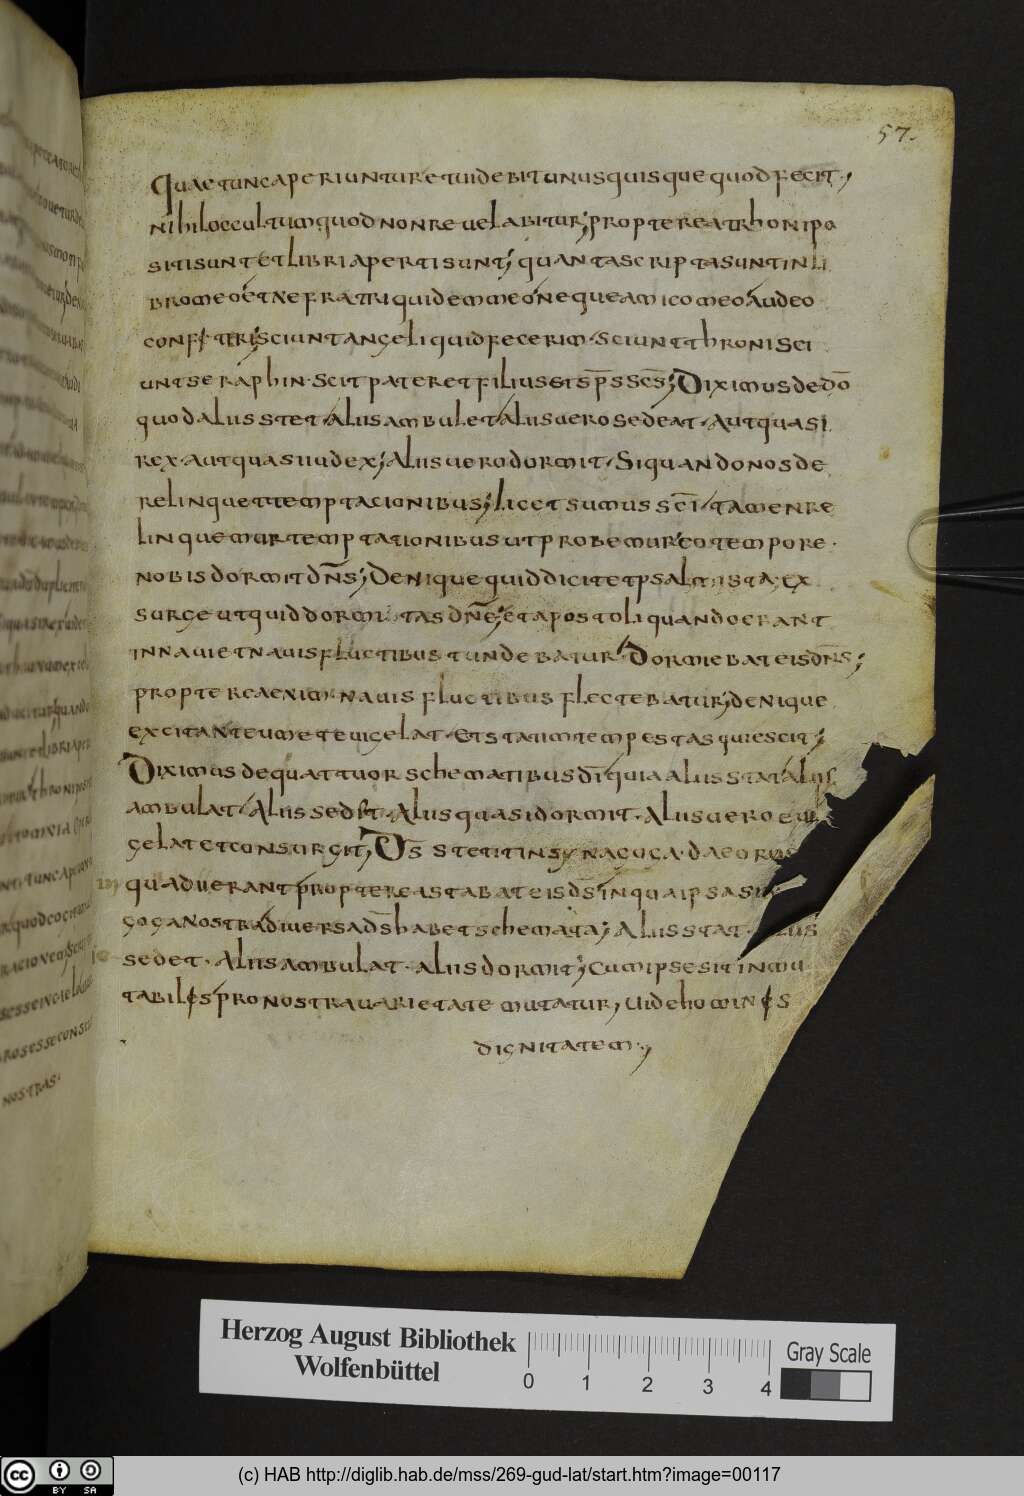 57.
quae tunc aperiuntur et uidebit unusquisque quod fecit.,
nihil occultum quod non reuelabitur; propterea throni po
siti sunt et libri aperti sunt; quanta scripta sunt in li
bro meo et ne fratri quidem meo neque amico meo audeo
confiteri; sciunt angeli quid fecerim. sciunt throni sci
unt seraphin. scit pater et filius et sp̄s sc̄s; Diximus de dō
quod alius stet. alius ambulet alius uero sedeat. aut quasi
rex. aut quasi iudex; alius uero dormit. Si quando nos de
relinquet temptacionibus; licet sumus sc̄i. tamen re
linquemur temptationibus ut probemur; eo tempore.
nobis dormit dn̄s; Denique quid dicitet psalmista; ex
surge ut quid dormitas dn̄e; et apostoli quando erant
in naui et nauis fluctibus tundebatur. Dormiebat eis dn̄s;
propterea enim. nauis fluctibus flectebatur; denique
excitant eum et euigelat. Et statim tempestas quiescit;
Diximus de quattuor schematibus dī quia alius stat alius
ambulat. Alius sedet. Alius quasi dormit. Alius uero eui
gelat et consurgit; Ds̄ stetit in synagoga. daeorus
quad uerant propterea stabat eis ds̄ in qua ipsa
goga nostra diuersa ds̄ habet schemata; Alius stat. alius
sedet. Alius ambulat. alius dormit; Cum ipse sit inmu
tabiles pro nostra uarietate mutatur, uide hominis
dignitatem.,
Herzog August Bibliothek
Wolfenbüttel
0 1 2 3 4
Gray Scale
cc BY SA
(c) HAB http://diglib.hab.de/mss/269-gud-lat/start.htm?image=00117